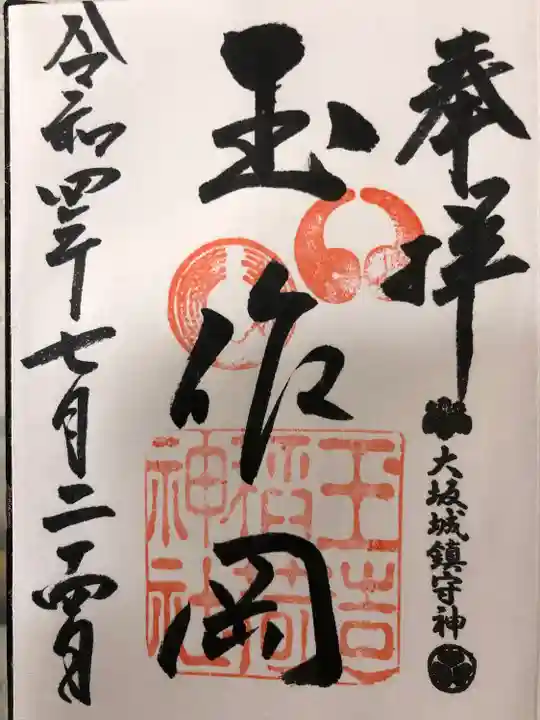 奉拝
大坂城鎮守神
玉作岡
玉造
稲荷
神社
令和四年七月二十四日